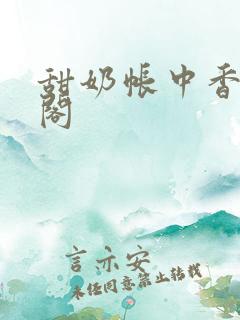 甜奶帐中香
阁
言亦安
未经同意禁止转载